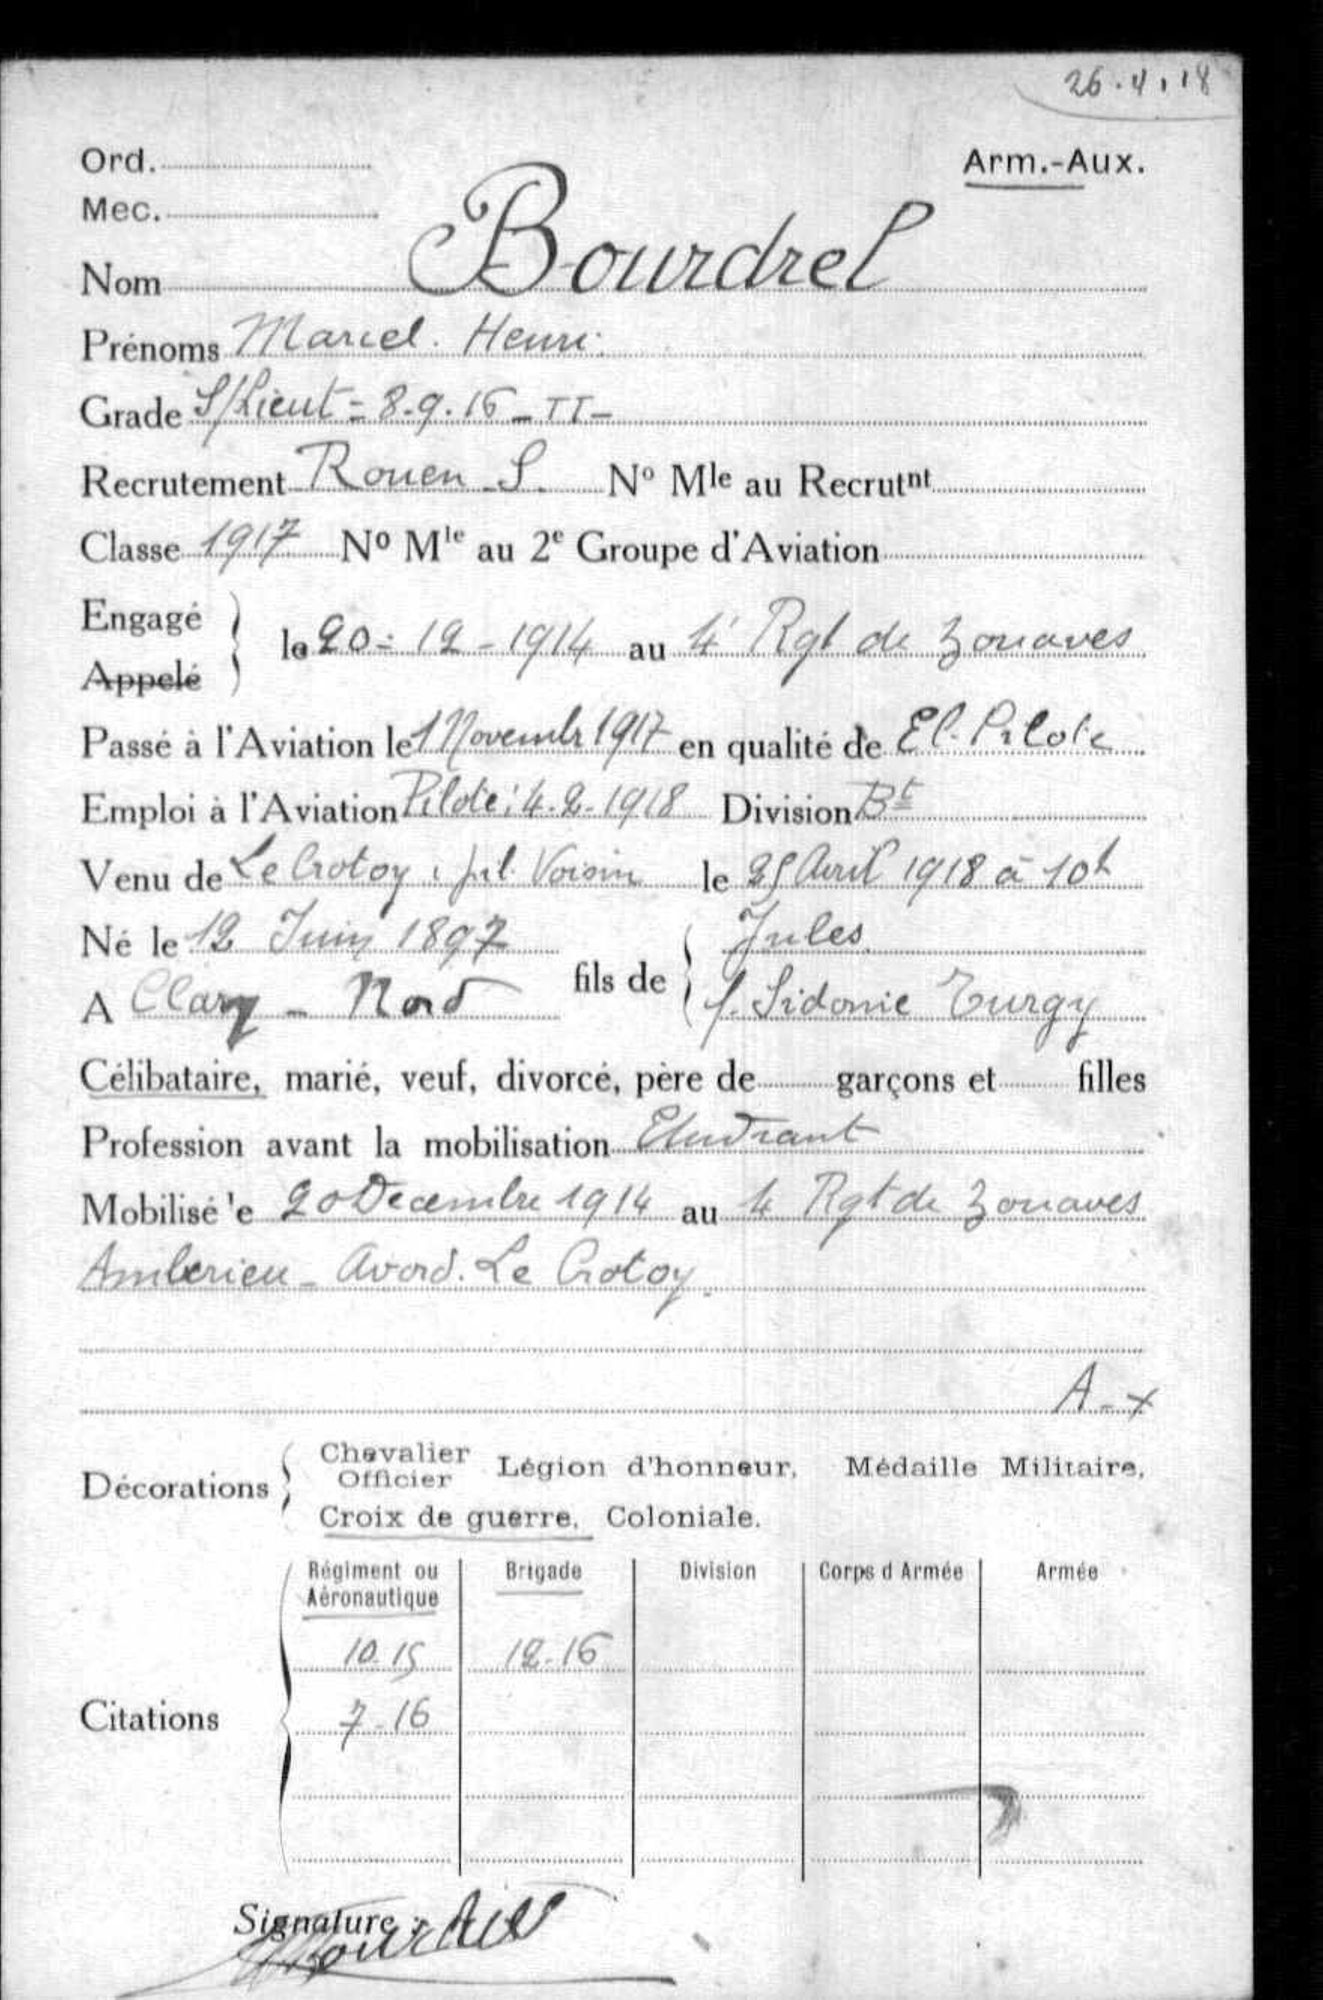 26.4.18
Ord.
Arm.-Aux.
Mec.
Nom Bourdrel
Prénoms Marcel. Henri.
Grade S/Lieut = 8-9.16 - TT -
Recrutement Rouen S. No Mle au Recrutnt
Classe 1917 No Mle au 2e Groupe d'Aviation
Engagé
Appelé
le 20 - 12 - 1914 au 4e Rgt de Zouaves
Passé à l'Aviation le 1 Novembre 1917 en qualité de El. Pilote
Emploi à l'Aviation Pilote: 4.2.1918 Division Bt
Venu de Le Crotoy, pil. Voisin le 25 Avril 1918 à 10h
Né le 12 Juin 1897 fils de Jules
A Clary - Nord f. Sidonie Turgy
Célibataire, marié, veuf, divorcé, père de garçons et filles
Profession avant la mobilisation Etudiant
Mobilisé le 20 Decembre 1914 au 4 Rgt de Zouaves
Amberieu - Avord. Le Crotoy.
A - x
Décorations Chevalier Officier Légion d'honneur, Médaille Militaire,
Croix de guerre, Coloniale.
Citations
Régiment ou Aéronautique Brigade Division Corps d Armée Armée
10.15 12-16
7-16
Signature : Bourdrel